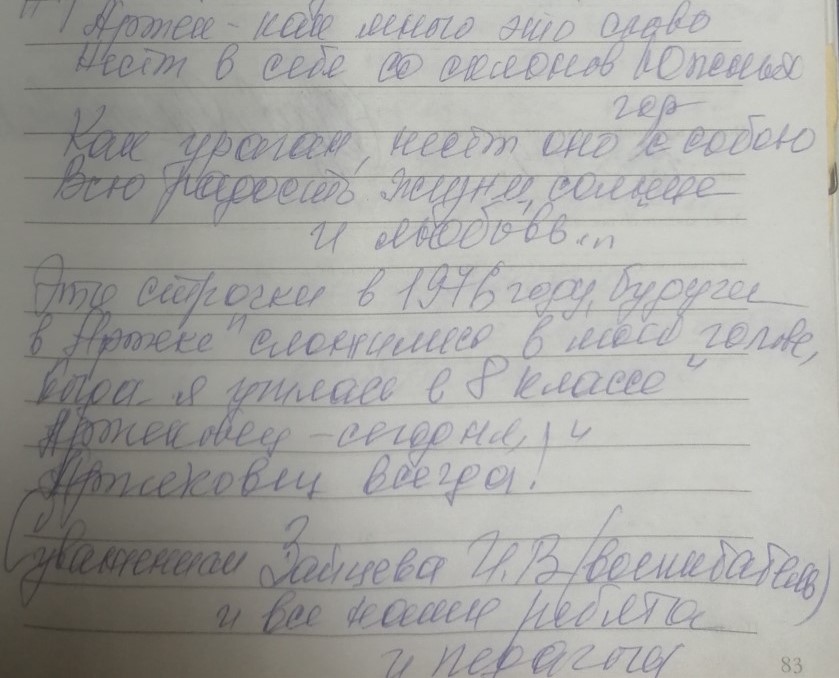 Артек - как много это слово
Несёт в себе со склонов Южных
гор
Как ураган, несёт оно с собою
Всю радость жизни, солнце
и любовь..."
Эти строчки в 1976 году, будучи
в "Артеке" сложились в моей голове,
когда я училась в 8 классе"
Артековец - сегодня,
Артековец всегда!"
С уважением Зайцева И.В. (воспитатель)
и все наши ребята
и педагоги
83